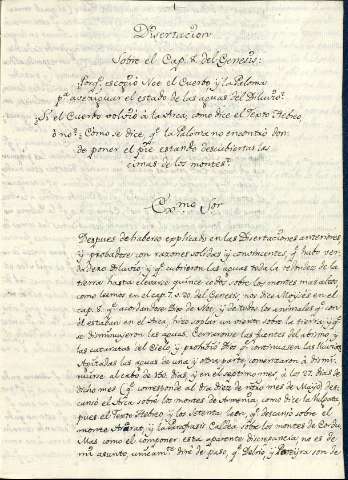 1
Disertacion
Sobre el Cap. 8 del Genesis:
¿Porq. escogió Noe el Cuerbo y la Paloma
p.a averiguar el estado de las aguas del Diluvio?
¿Si el Cuerbo volvió a la Arca, como dice el Texto Hebreo,
ò no? ¿Como se dice, q.e la Paloma no encontró don-
de poner el pie estando descubiertas las
cimas de los montes?
Exmo Sor
Despues de haberse explicado en las Disertaciones anteriores,
y probadose con razones solidas y convincentes, q.e hubo ver-
dadero Diluvio y q.e cubrieron las aguas toda la redondez de la
tierra hasta elevarse quince codos sobre los montes mas altos,
como leemos en el cap. 7. v. 20. del Genesis; nos dice Moyses en el
cap. 8. q.e acordandose Dios de Noe, y de todos los animales q.e con
èl estaban en el Arca, hizo soplar un viento sobre la tierra, y q.e
se disminuyeron las aguas. Cerraronse las fuentes del abismo y
las cataratas del Cielo, y prohibió Dios q.e continuasen las lluvias.
Agitadas las aguas de una y otra parte, comenzaron à dismi-
nuirse al cabo de 150 dias, y en el septimo mes, à los 27. dias de
dicho mes (q.e corresponde al dia diez de nuestro mes de Mayo) des-
cansó el Arca sobre los montes de Armenia, como dice la Vulgata,
pues el Texto Hebreo y los Setenta leen, q.e descansó sobre el
monte Ararat, y la Parafrasis Caldea sobre los montes de Cordu.
Mas como el componer esta aparente discrepancia no es de
mi asunto, unicam.te diré de paso, q.e Delrio y Pereyra son de